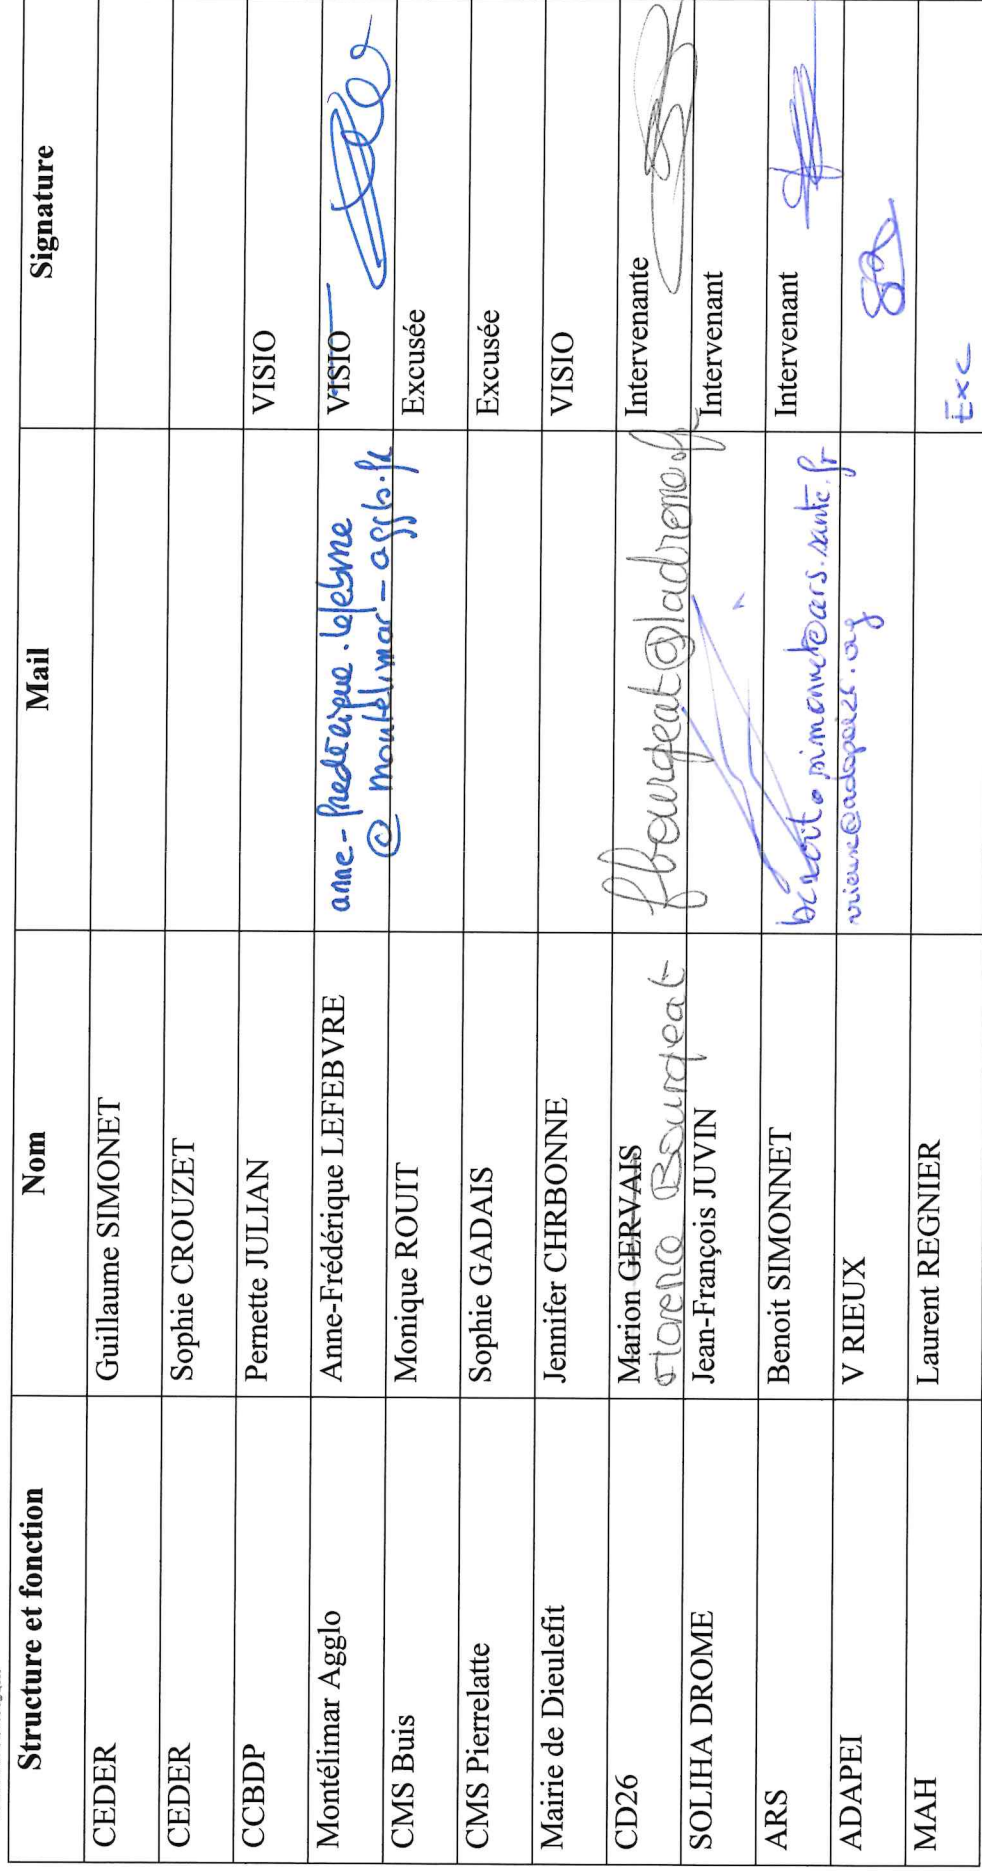 Structure et fonction Nom Mail Signature
CEDER Guillaume SIMONET
CEDER Sophie CROUZET
CCBDP Pernette JULIAN VISIO
Montélimar Agglo Anne-Frédérique LEFEBVRE anne-frédérique.lefebvre VISIO
@ montelimar-agglo.fr
CMS Buis Monique ROUIT Excusée
CMS Pierrelatte Sophie GADAIS Excusée
Mairie de Dieulefit Jennifer CHRBONNE VISIO
CD26 Marion GERVAIS fbourgeat@ladrome.fr Intervenante
Florence Bourgeat
SOLIHA DROME Jean-François JUVIN Intervenant
ARS Benoit SIMONNET benoit.simonnet@ars.sante.fr Intervenant
ADAPEI V RIEUX vrieux@adapei26.org
MAH Laurent REGNIER Exc